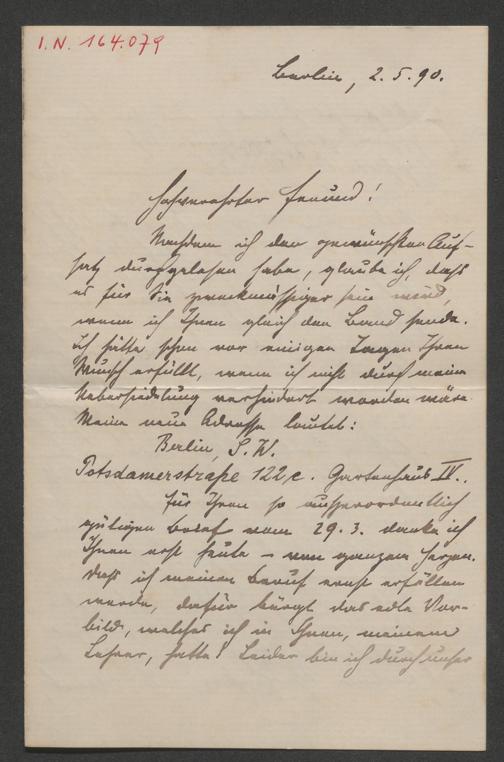 I.N. 164.079
Berlin, 2.5.90.
Hochverehrter Freund!
Nachdem ich den gewünschten Auf-
satz durchgelesen habe, glaube ich, dass
es für Sie zweckmässiger sein wird,
wenn ich Ihnen gleich den Band sende.
Ich hätte schon vor einigen Tagen Ihren
Wunsch erfüllt, wenn ich nicht durch meine
Uebersiedelung verhindert worden wäre.
Meine neue Adresse lautet:
Berlin, S.W.
Potsdamerstraße 122c. Gartenhaus IV..
Für Ihren so ausserordentlich
gütigen Brief vom 29.3. danke ich
Ihnen erst heute – von ganzem Herzen.
Dass ich meinen Beruf ernst erfüllen
werde, dafür bürgt das edle Vor-
bild, welches ich in Ihnen, meinem
Lehrer, hatte! Leider bin ich durch unser